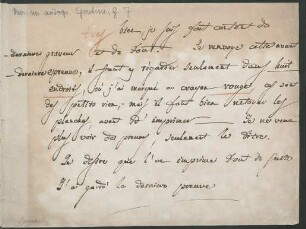 bien je suis fort content de
dernières preuves et de tout. Je renvoye cette avant
dernière épreuve, il faut y regarder seulement dans huit
endroits, où j'ai marqué au crayon rouge, ce sont
des petits riens; mais il faut bien nettoyer les
planches avant de imprimer — Je ne veux
plus voir des preuves, seulement le titre.
Je désire que l'on imprime tout de suite
J'ai gardé la dernière preuve